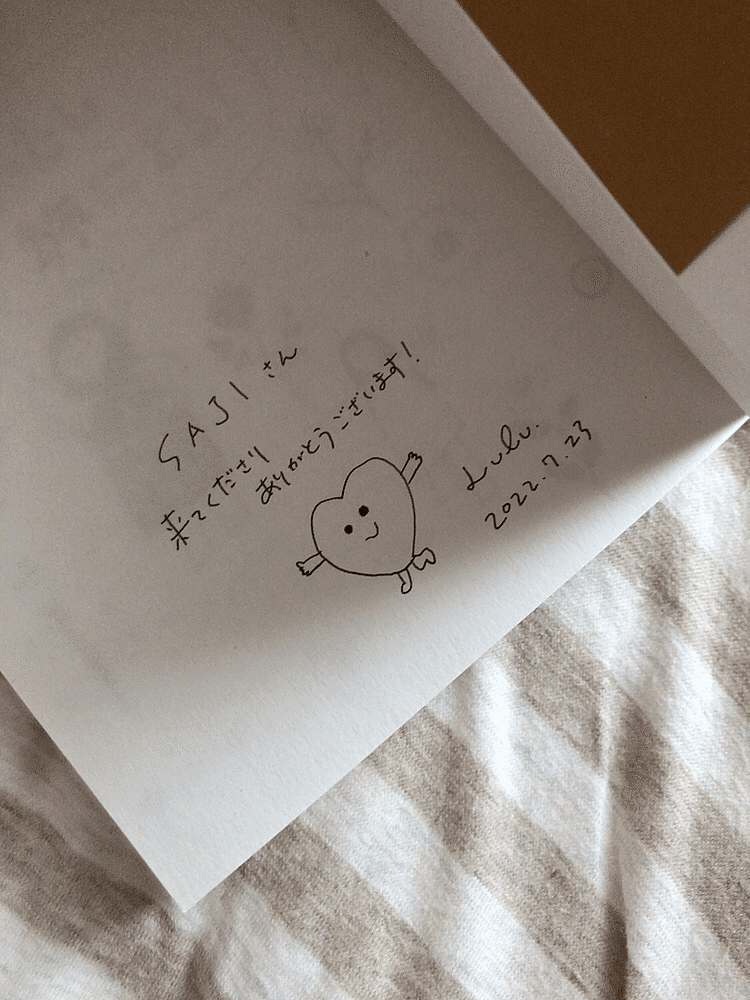 SAJIさん
来てくださり
ありがとうございます!
Lulu.
2022.7.23